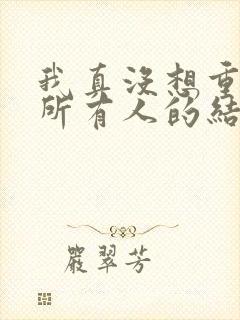 我真沒想重
所有人的結
嚴翠芳